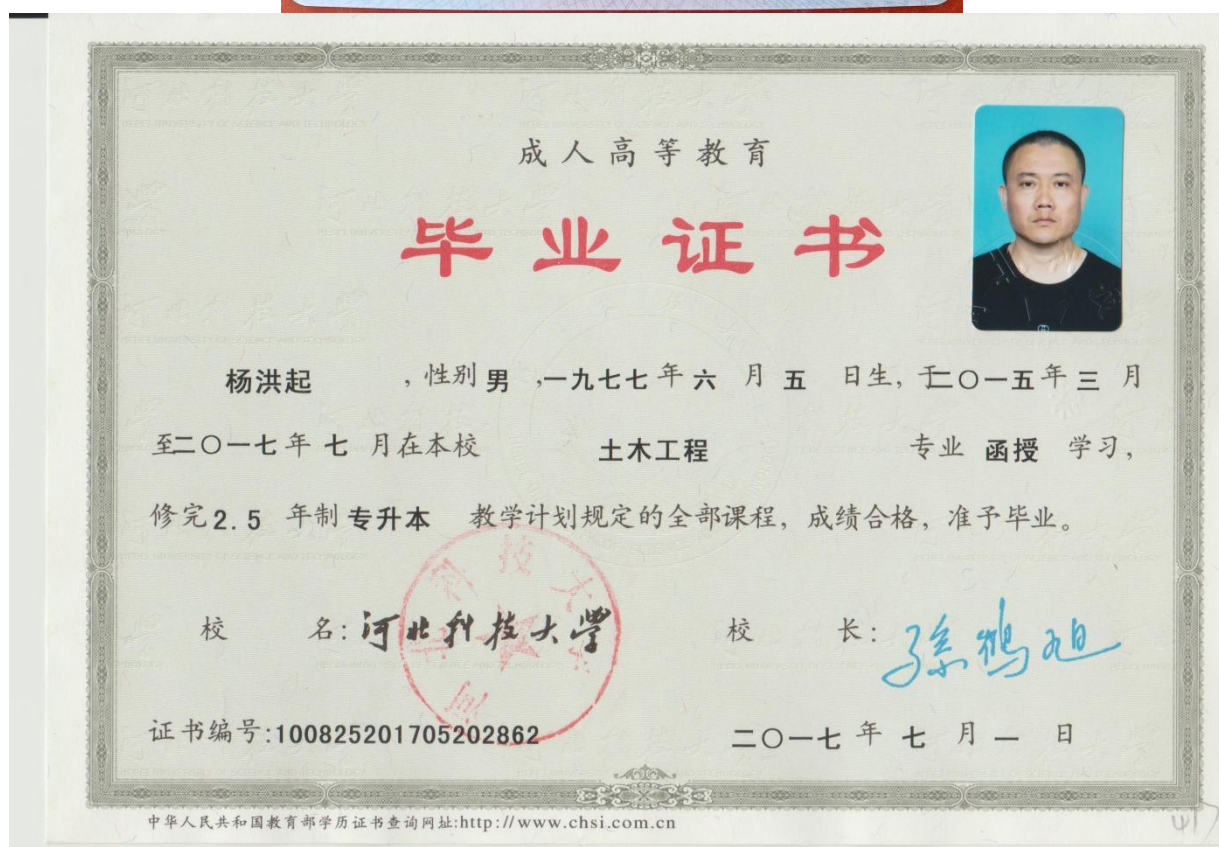 成人高等教育
毕业证书
杨洪起 ，性别 男 ，一九七七 年 六 月 五 日生，于二〇一五 年 三 月
至二〇一七 年 七 月在本校 土木工程 专业 函授 学习，
修完2.5 年制 专升本 教学计划规定的全部课程，成绩合格，准予毕业。
校 名：河北科技大学 校 长：孙鹤旭
证书编号:100825201705202862 二〇一七 年 七 月 一 日
中华人民共和国教育部学历证书查询网址:http://www.chsi.com.cn